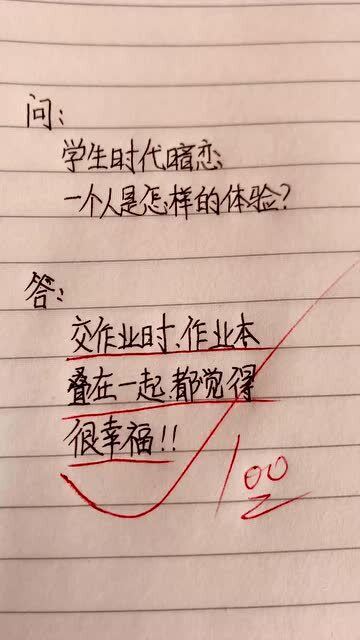 问：
学生时代暗恋
一个人是怎样的体验？
答：
交作业时、作业本
叠在一起、都觉得
很幸福！！
100